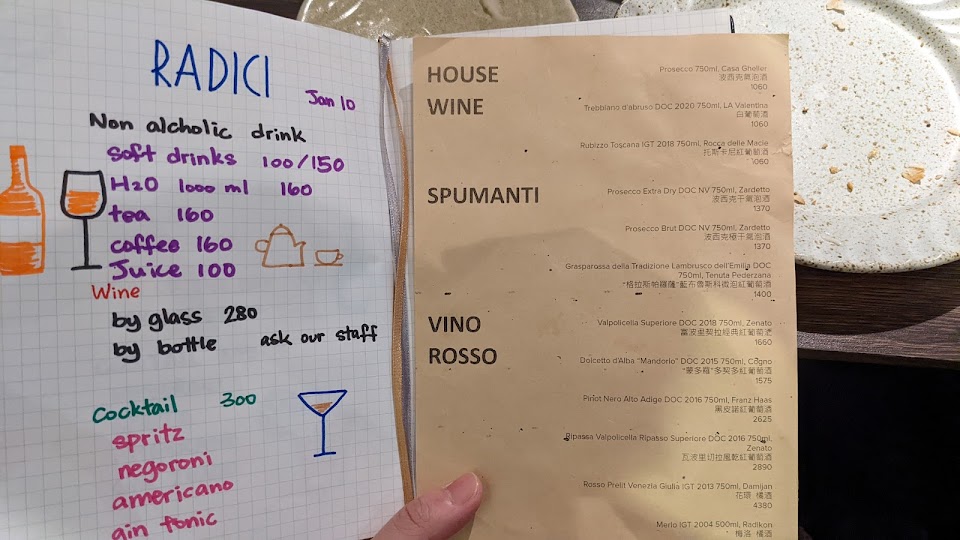 RADICI
Jan 10
Non alcholic drink
soft drinks 100/150
H2O 1000 ml 160
tea 160
coffee 160
Juice 100
Wine
by glass 280
by bottle ask our staff
Cocktail 300
spritz
negoroni
americano
gin tonic
HOUSE
WINE
Prosecco 750ml, Casa Gheller
波西克氣泡酒
1060
Trebbiano d'abruso DOC 2020 750ml, LA Valentina
白葡萄酒
1060
Rubizzo Toscana IGT 2018 750ml, Rocca delle Macie
托斯卡尼紅葡萄酒
1060
SPUMANTI
Prosecco Extra Dry DOC NV 750ml, Zardetto
波西克干氣泡酒
1370
Prosecco Brut DOC NV 750ml, Zardetto
波西克極干氣泡酒
1370
Grasparossa della Tradizione Lambrusco dell'Emilia DOC
750ml, Tenuta Pederzana
"格拉斯帕羅薩"藍布魯斯科微泡紅葡萄酒
1400
VINO
ROSSO
Valpolicella Superiore DOC 2018 750ml, Zenato
富波里契拉經典紅葡萄酒
1660
Dolcetto d'Alba "Mandorlo" DOC 2015 750ml, Cogno
"蒙多羅"多契多紅葡萄酒
1575
Pinot Nero Alto Adige DOC 2016 750ml, Franz Haas
黑皮諾紅葡萄酒
2625
Ripassa Valpolicella Ripasso Superiore DOC 2016 750ml,
Zenato
瓦波里切拉風乾紅葡萄酒
2890
Rosso Prelit Venezia Giulia IGT 2013 750ml, Damijan
花環 橘酒
4380
Merlo IGT 2004 500ml, Radikon
梅洛 橘酒